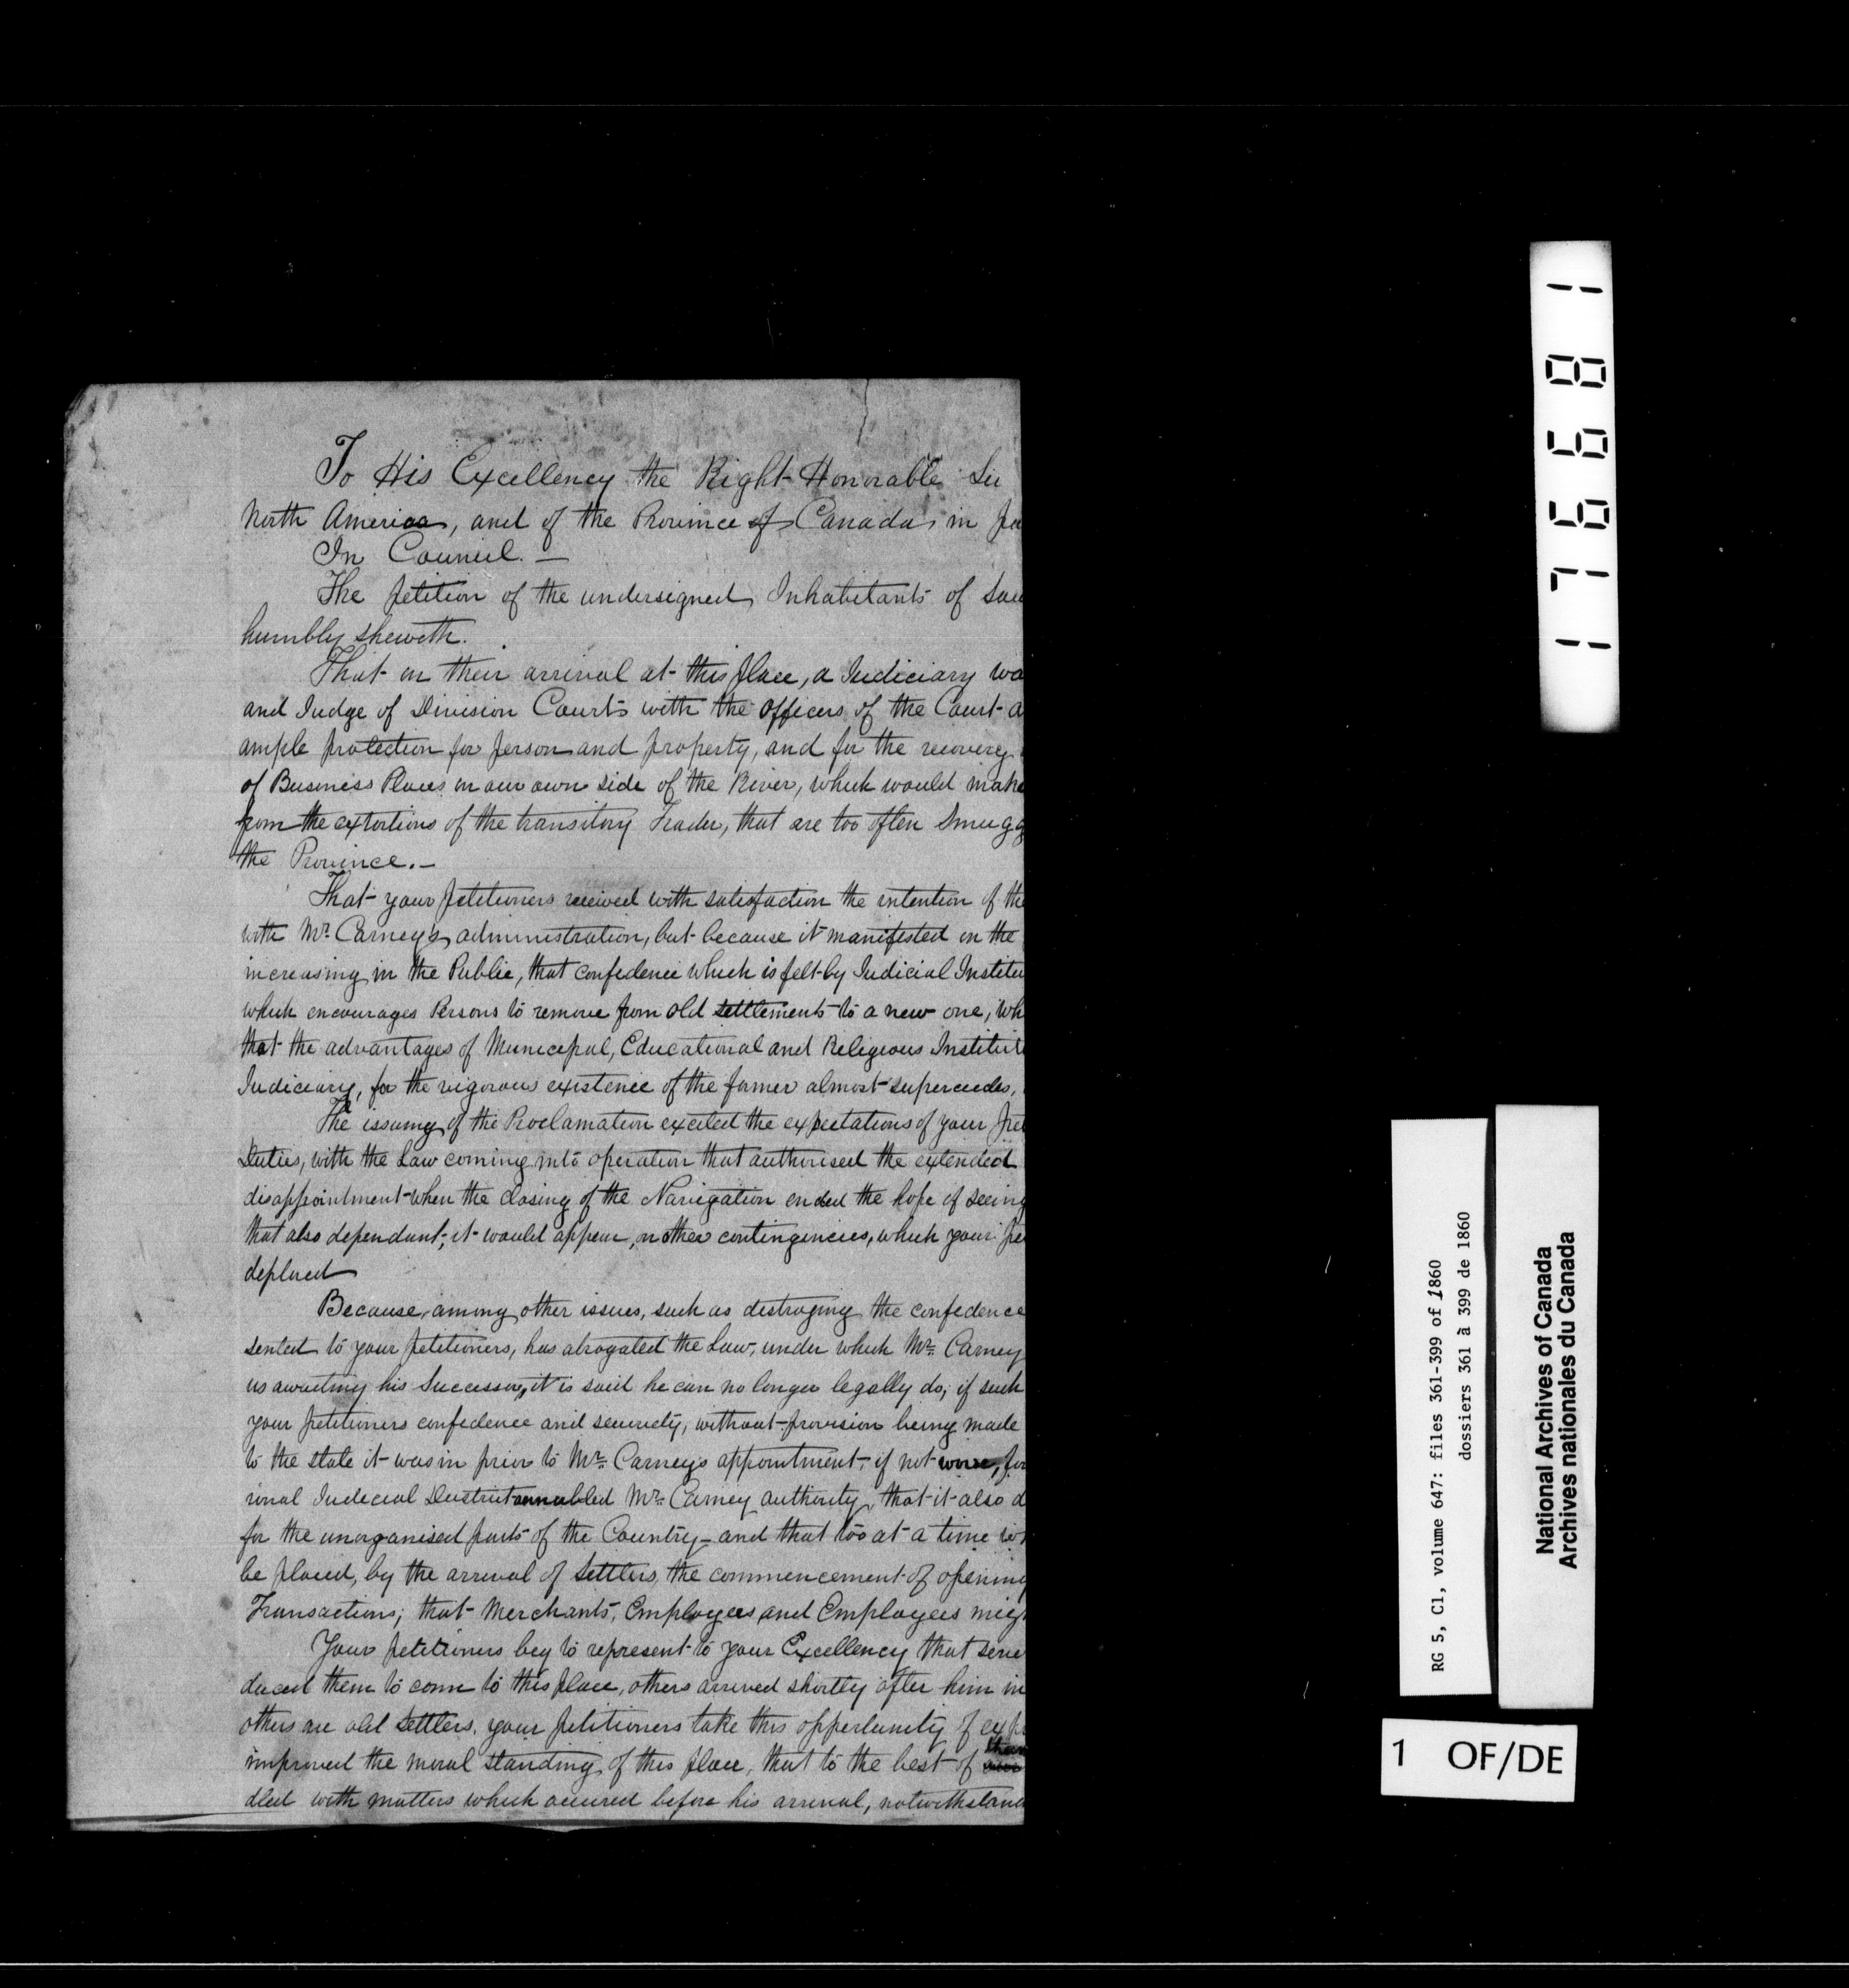 To His Excellency the Right Honorable Sir
North America, and of the Province of Canada, in
In Council. —
The petition of the undersigned Inhabitants of Sau
humbly sheweth.
That on their arrival at this place, a Judiciary wa
and Judge of Division Courts with the Officers of the Court a
ample protection for person and property, and for the recovery
of Business Places on our own side of the River, which would make
from the extortions of the transitory Trader, that are too often Smugg
the Province. —
That your petitioners received with satisfaction the intention of the
with Mr. Carney's administration, but because it manifested on the
increasing in the Public, that confidence which is felt by Judicial Institu
which encourages Persons to remove from old settlements to a new one, wh
that the advantages of Municipal, Educational and Religious Institut
Judiciary, for the vigorous existence of the former almost supercedes,
The issuing of the Proclamation excited the expectations of your Pet
Duties, with the Law coming into operation that authorised the extended
disappointment when the closing of the Navigation ended the hope of seeing
that also dependant; it would appear, on other contingencies, which your pe
deplored
Because, among other issues, such as destroying the confidence
sented to your petitioners, has abrogated the Law, under which Mr. Carney
us awaiting his Successor, it is said he can no longer legally do; if such
your petitioners confidence and security, without provision being made
to the state it was in prior to Mr. Carney's appointment, if not worse, for
ional Judicial District annulled Mr. Carney authority, that it also d
for the unorganised parts of the Country — and that too at a time
be placed, by the arrival of Settlers, the commencement of opening
Transactions; that Merchants, Employers and Employees migh
Your petitioners beg to represent to your Excellency that seve
duced them to come to this place, others arrived shortly after him in
others are old Settlers, your petitioners take this opportunity of exp
improved the moral standing of this place, that to the best of their
dled with matters which occured before his arrival, notwithstand
176681
RG 5, C1, volume 647: files 361-399 of 1860
dossiers 361 à 399 de 1860
National Archives of Canada
Archives nationales du Canada
1 OF/DE